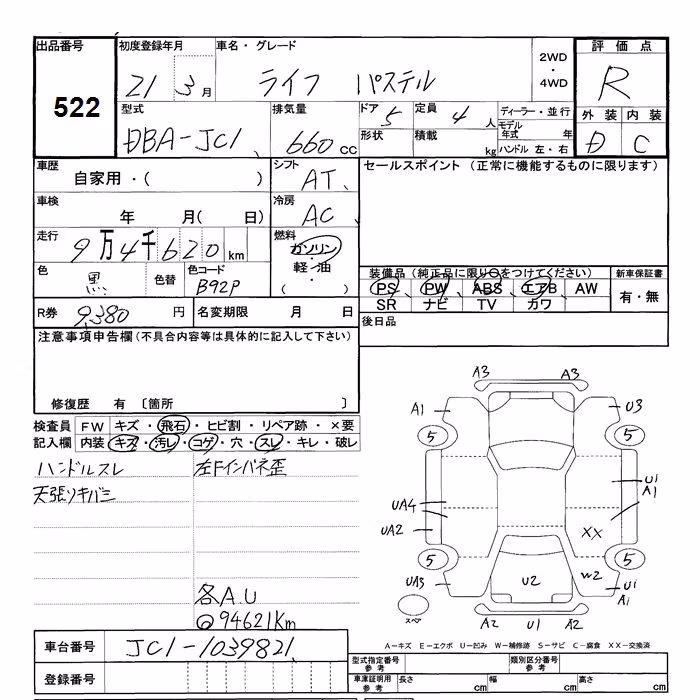 出品番号 初度登録年月 車名・グレード 2WD・4WD 評価点
522 21 3月 ライフ パステル R
型式 排気量 ドア 5 定員 4人 ディーラー・並行 外装 内装
DBA-JC1 660cc 形状 積載 kg モデル年式 年 ハンドル 左・右 D C
車歴 シフト セールスポイント (正常に機能するものに限ります)
自家用・( ) AT
車検 冷房
年 月( 日) AC
走行 燃料
9万4千620km ガソリン・軽油・( )
色 黒 色替 色コード B92P
装備品(純正品に限り○をつけてください) 新車保証書
PS PW ABS エアB AW 有・無
SR ナビ TV カワ
R券 9,380円 名変期限 月 日 後日品
注意事項申告欄(不具合内容等は具体的に記入して下さい)
修復歴 有 〔箇所 〕
検査員記入欄 FW キズ・飛石・ヒビ割・リペア跡・×要
内装 キズ・汚レ・コゲ・穴・スレ・キレ・破レ
ハンドルスレ 左Fインパネ歪
天張リキバミ
各A.U
94621Km
A3 A3
A1 U3
5 5
U1
A1
UA4
UA2 XX
5 5
UA3 U2 W2 U1
A1
スペア A2 U1 A2
A-キズ E-エクボ U-凹み W-補修跡 S-サビ C-腐食 XX-交換済
車台番号 JC1-1039821
型式指定番号 参考 類別区分番号 参考
登録番号 車庫証明用 参考 長さ cm 幅 cm 高さ cm